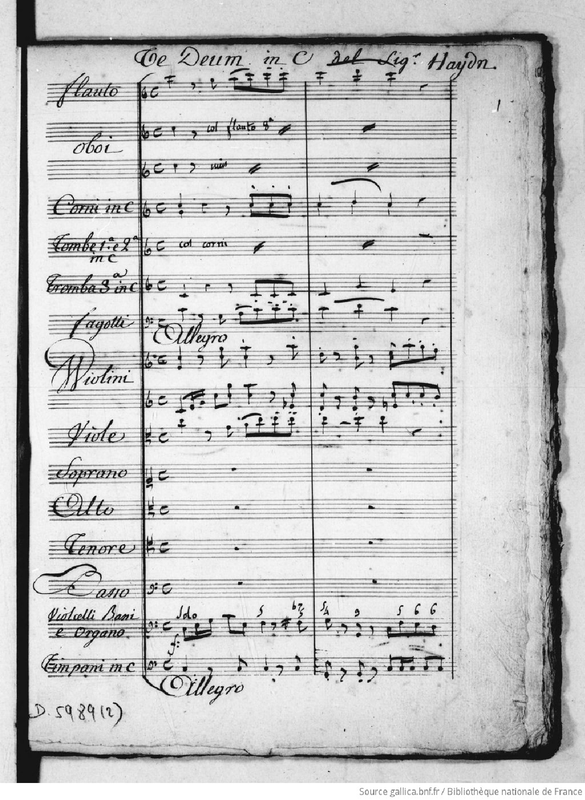 Te Deum in C del Sigr Haydn
1
Flauto
oboi
col flauto 8a
unis
Corni in C
Tombe 1a e 2a
in C
col corni
Tromba 3a in C
fagotti
Allegro
Violini
Viole
Soprano
Alto
Tenore
Basso
Violcelli Bassi
e Organo
Solo
5 6 6
Timpani in C
Allegro
D. 5989(2)
Source gallica.bnf.fr / Bibliothèque nationale de France